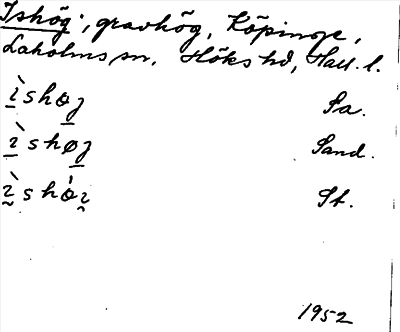 Ishög, gravhög, Köpinge,
Laholms sn. Höks hd, Hall. l.
ìshøj Pa.
ìshøj Sand.
ìshøi St.
1952